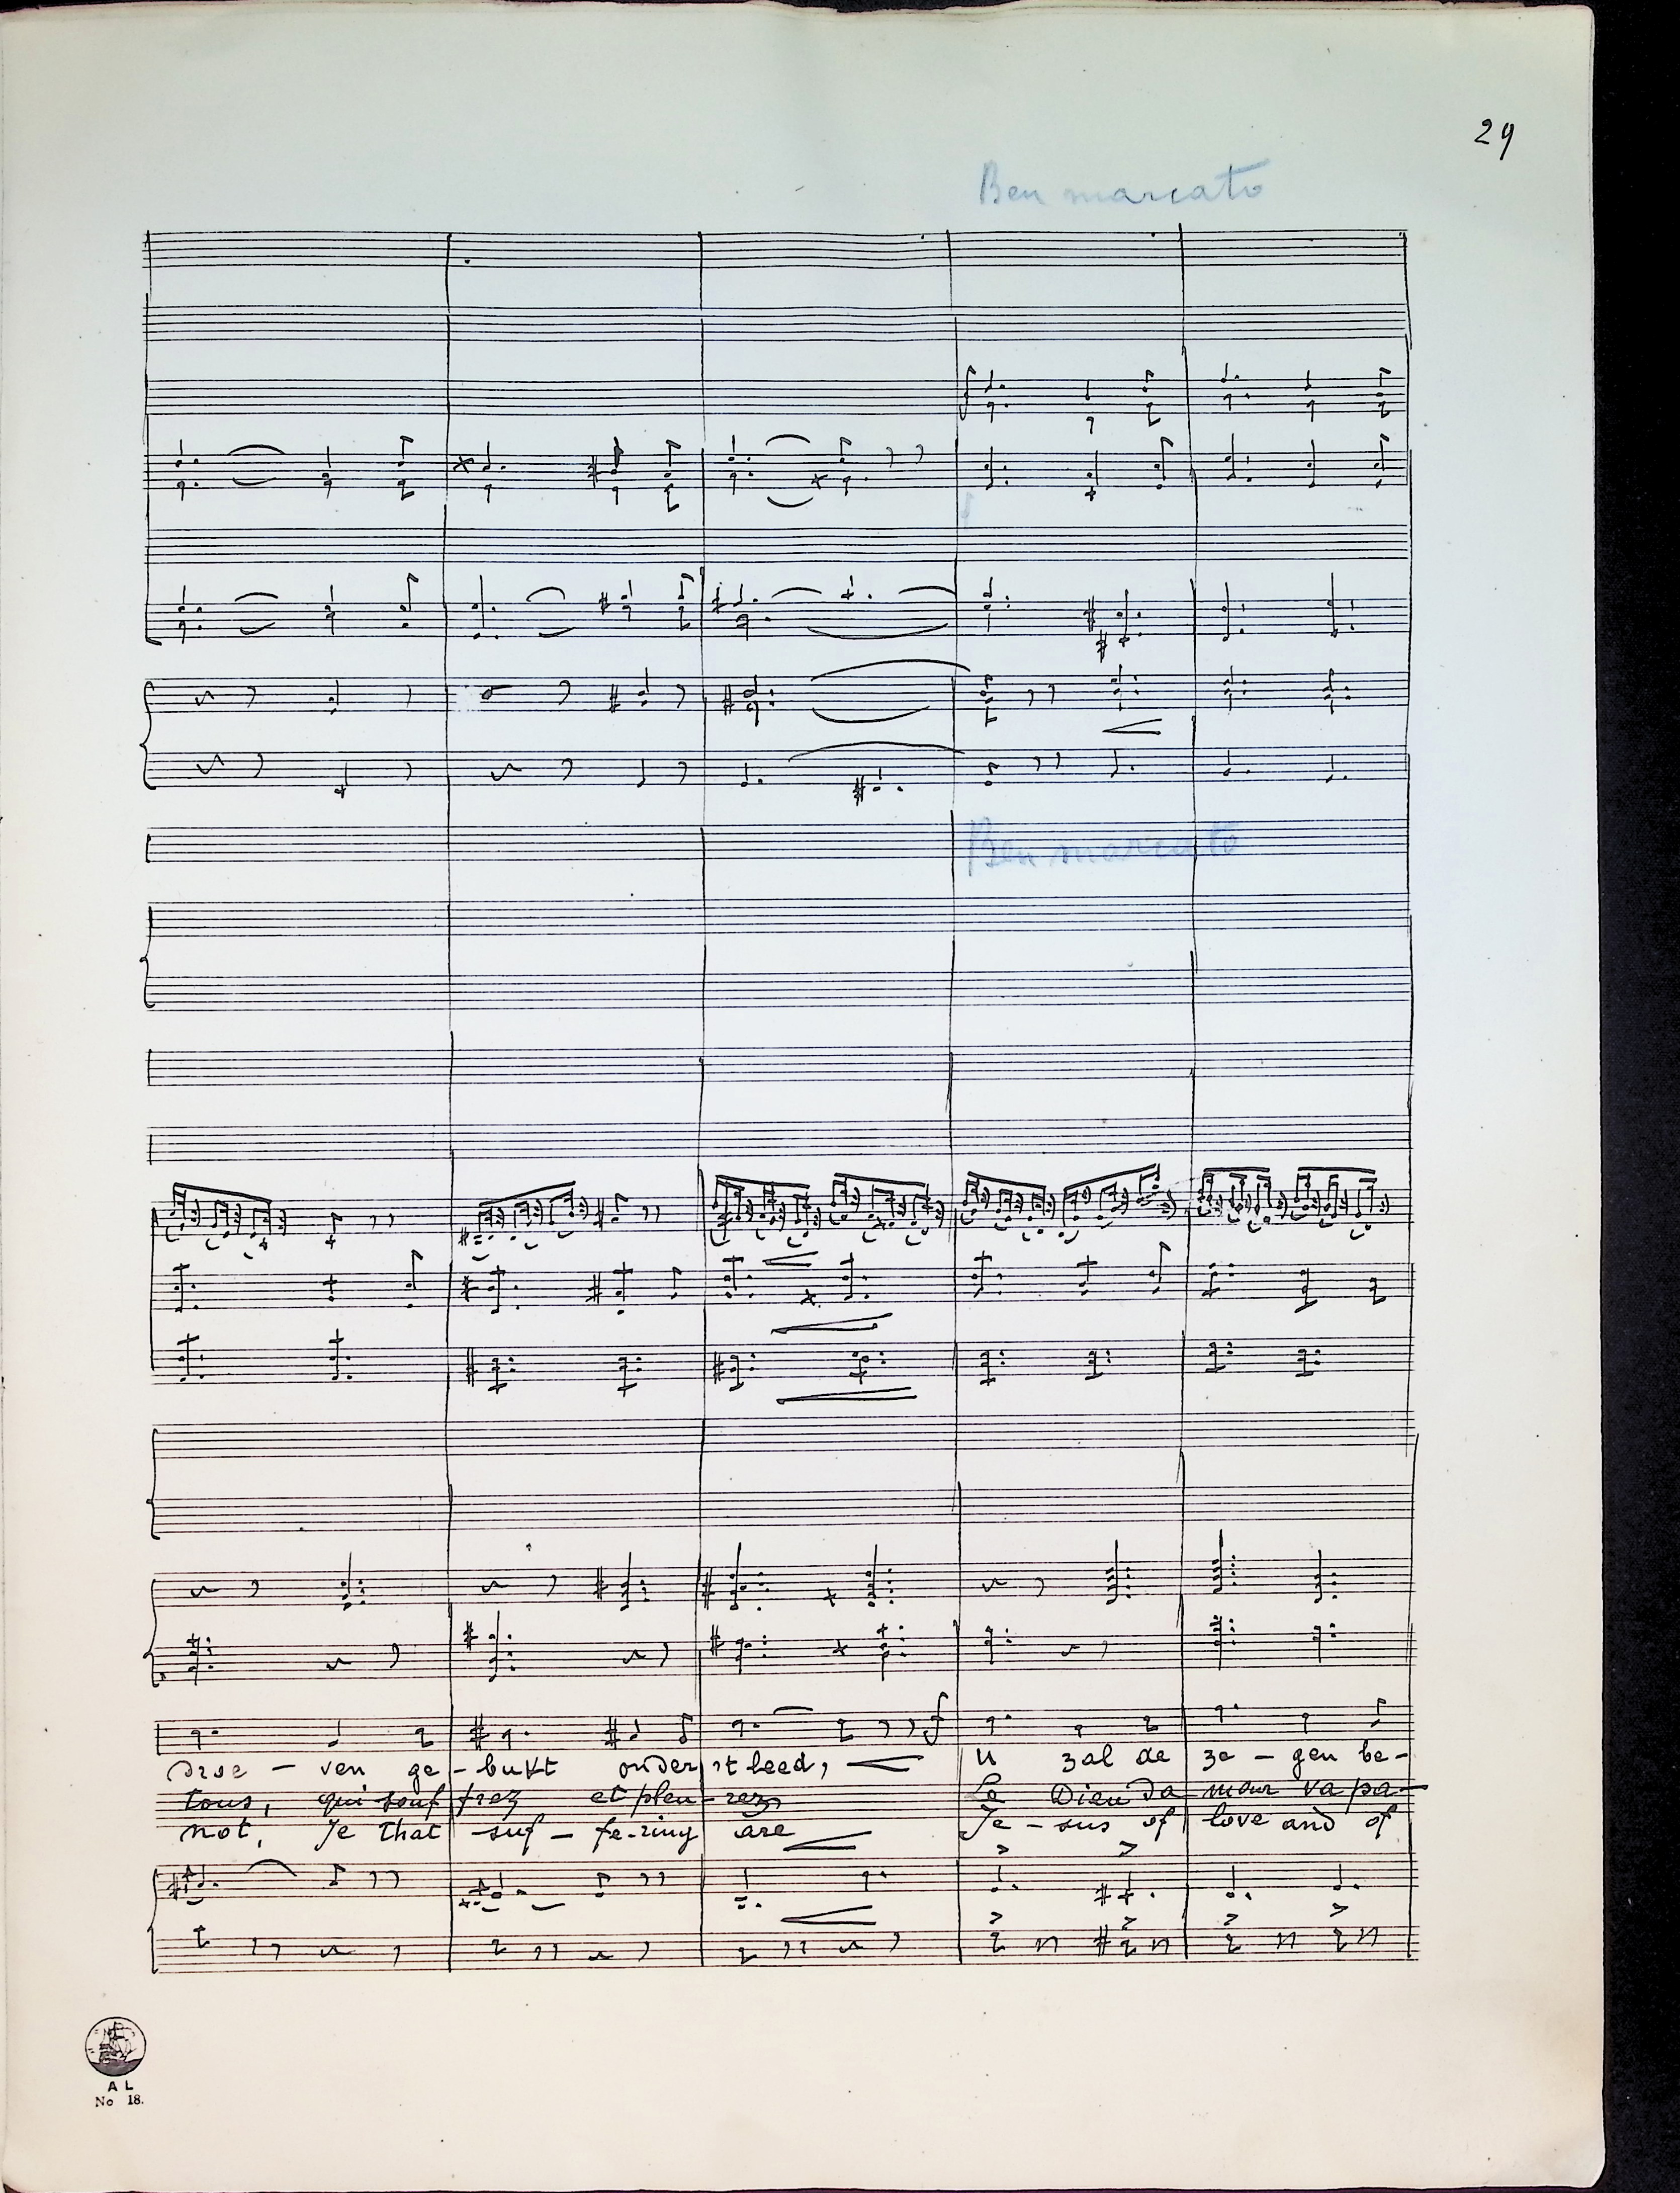 29
Ben marcato
Ben marcato
droe - ven ge - bukt onder 't leed, u zal de ze - gen be -
tous, qui souf frez et pleu - rez, Le Dieu da mour va pa -
not, Je that suf - fe-ring are Je - sus of love and of
A L
No 18.